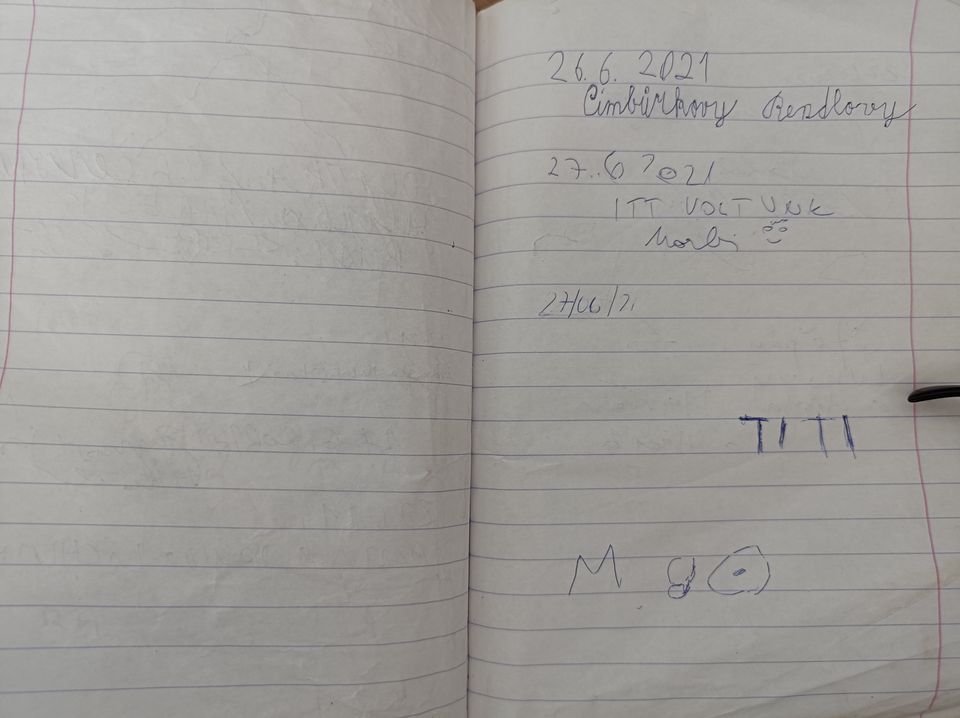 26.6. 2021
Cimbůrkovy Rendlovy
27..6 2021
ITT VOLTUNK
Norbi
27/06/21
TITI
M